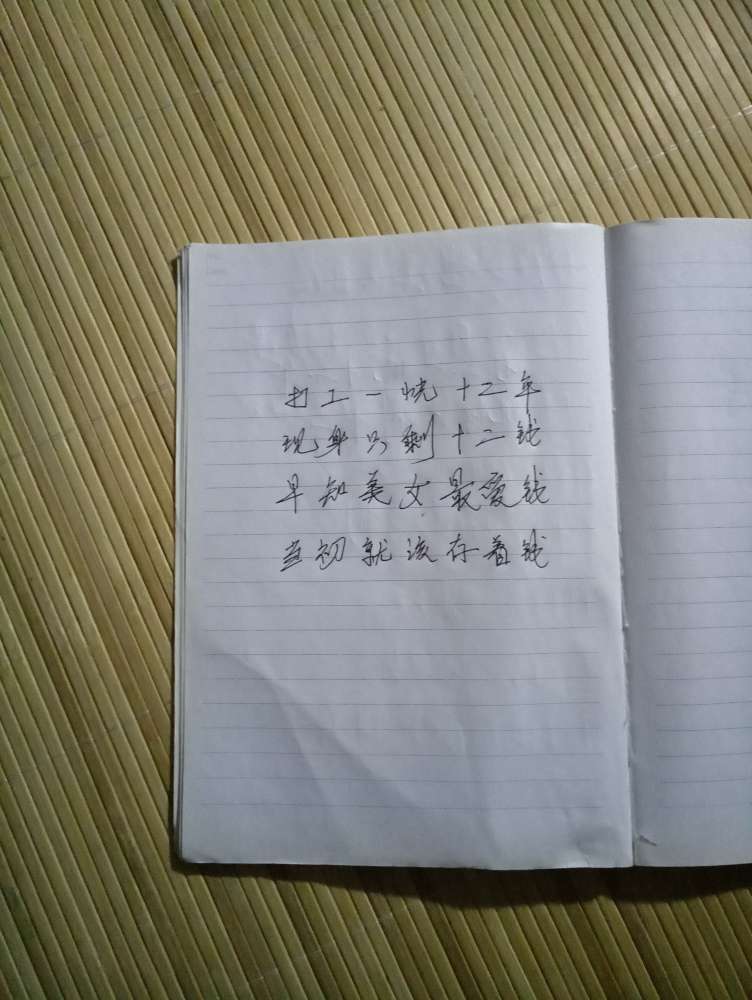 打工一晓十二年
现身只剩十二钱
早知美女最爱钱
当初就该存着钱